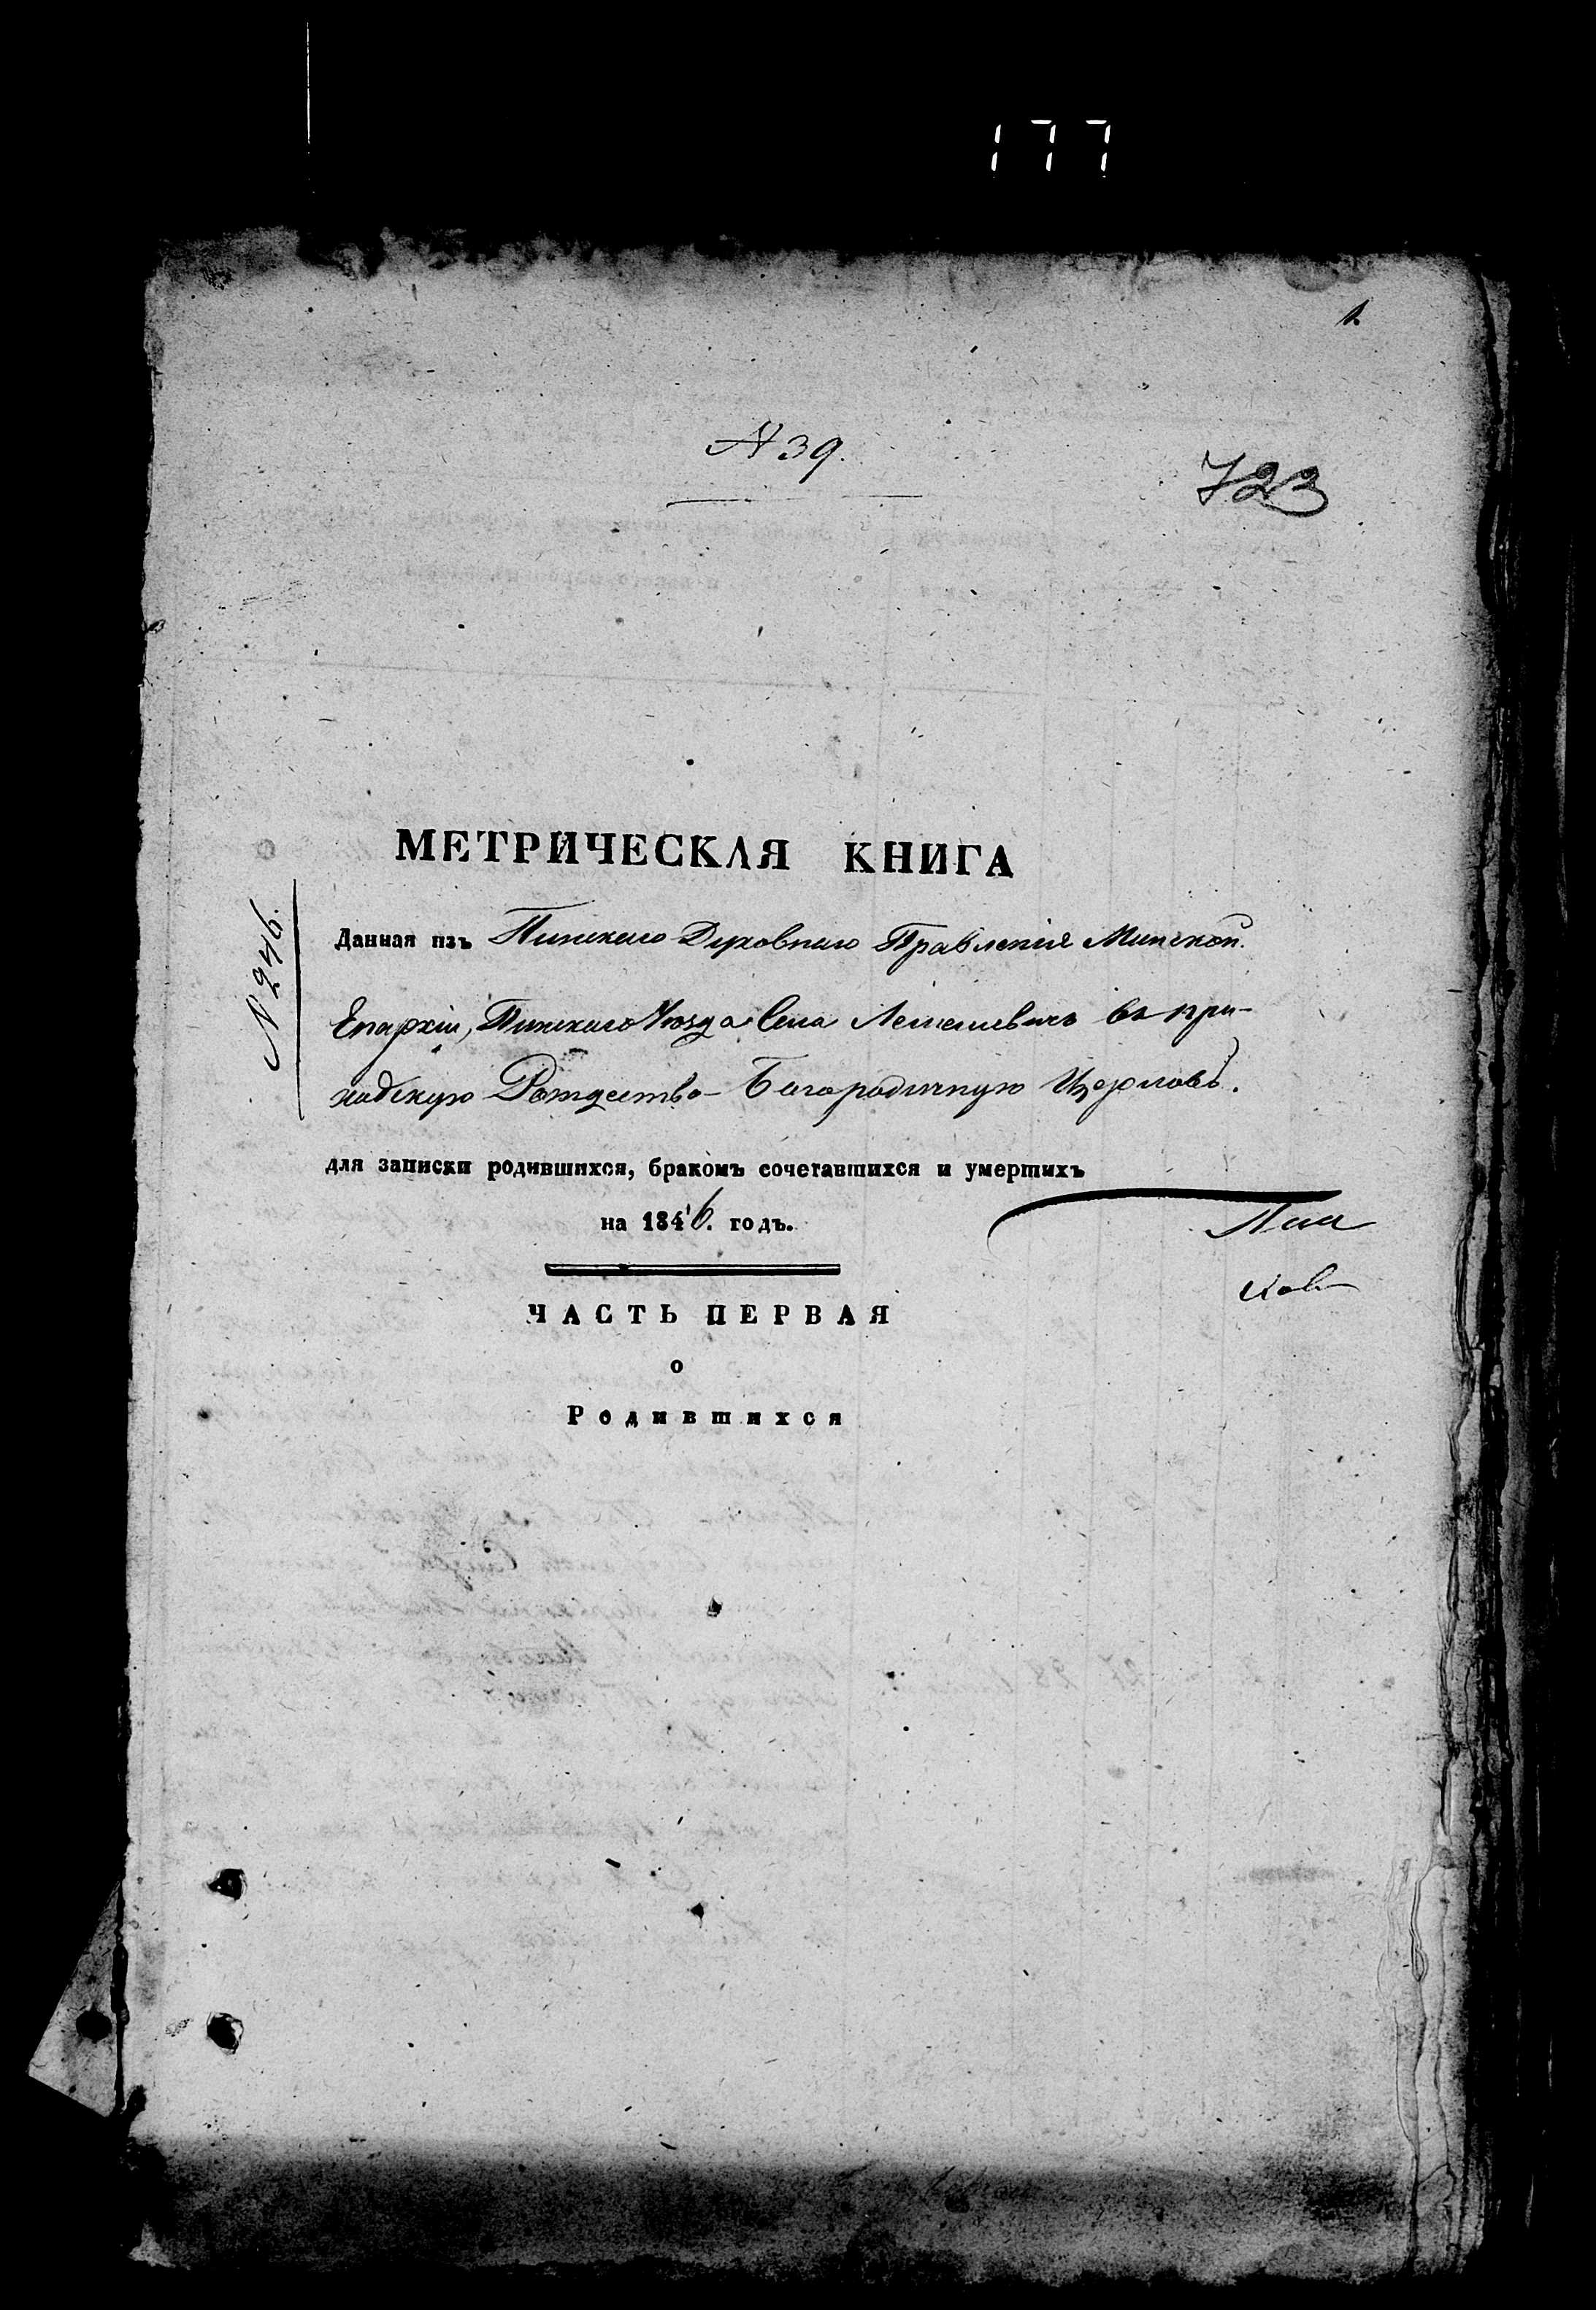 177
1.
N 39.
723
МЕТРИЧЕСКАЯ КНИГА
N 246.
Данная изъ Пинскаго Духовнаго Правленія Минской
Епархіи, Пинскаго Уезда Села Лемешевичь въ при-
ходскую Рождество-Богородичную Церковь.
для записки родившихся, бракомъ сочетавшихся и умершихъ
на 1846. годъ.
ЧАСТЬ ПЕРВАЯ
о
Родившихся